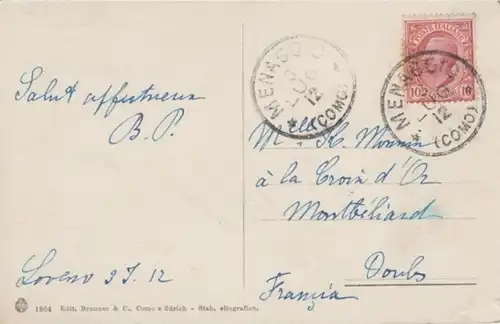 Salut affectueux
B. P.
Loveno 2 J. 12
1864 Edit. Brunner & C., Como e Zürich - Stab. eliografico.
MENAGGIO
12
(COMO)
POSTE ITALIANE
10 10
MENAGGIO
12
(COMO)
Melle
à la Croix d'Or
Montbéliard
Doubs
Francia